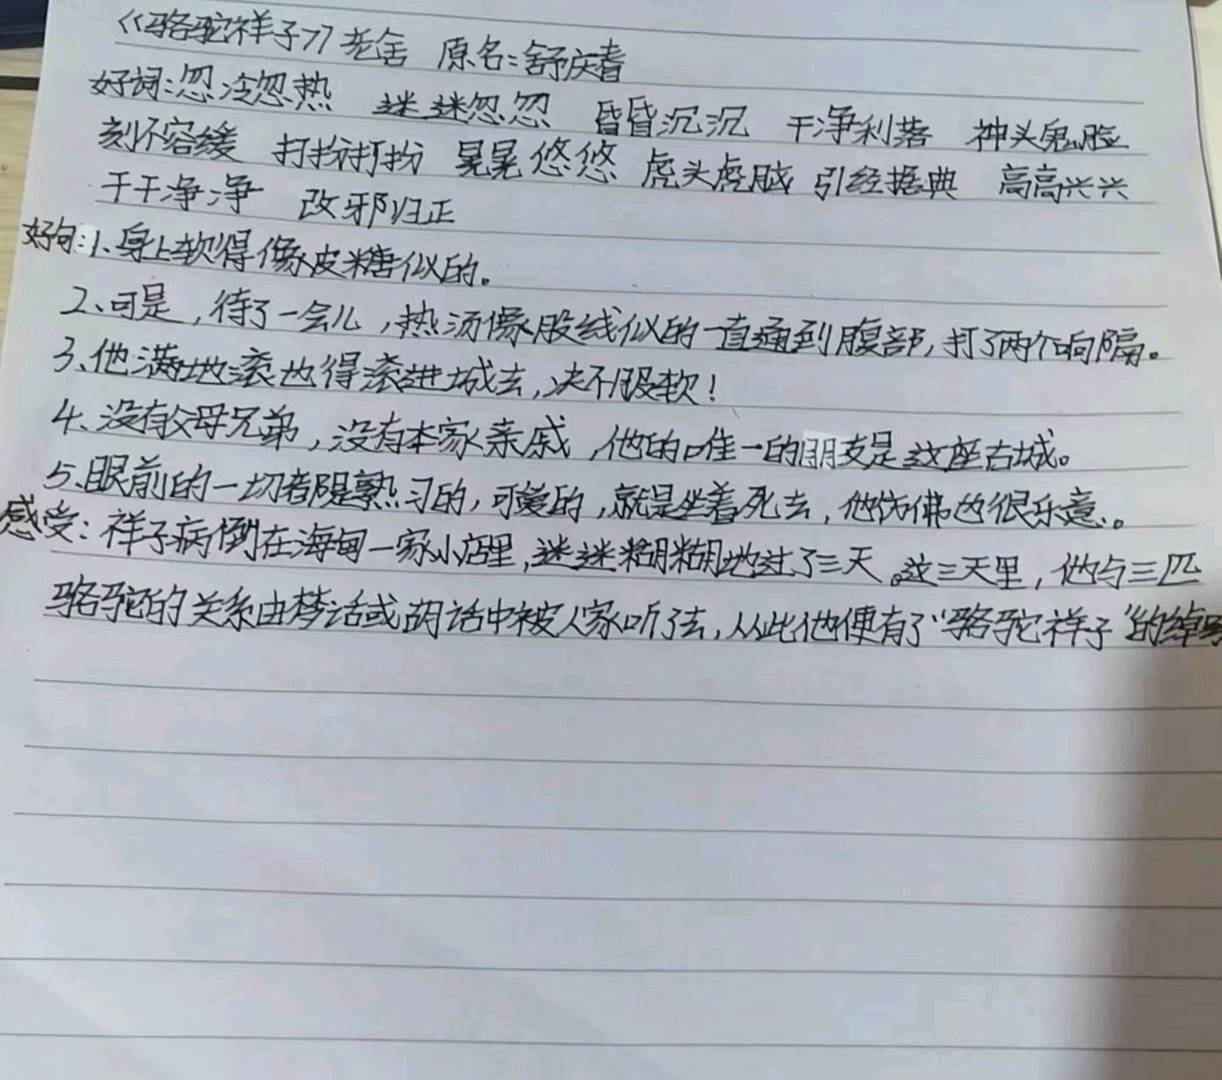 《骆驼祥子》老舍 原名:舒庆春
好词:忽冷忽热 迷迷忽忽 昏昏沉沉 干净利落 神头鬼脸
刻不容缓 打扮打扮 晃晃悠悠 虎头虎脑 引经据典 高高兴兴
干干净净 改邪归正
好句:1、身上软得像皮糖似的。
2、可是,待了一会儿,热汤像股线似的一直通到腹部,打了两个响隔。
3、他满地滚也得滚进城去,决不服软!
4、没有父母兄弟,没有本家亲戚,他的唯一的朋友是这座古城。
5、眼前的一切都是熟习的,可爱的,就是坐着死去,他仿佛也很乐意、。
感受:祥子病倒在海甸一家小店里,迷迷糊糊地过了三天。这三天里,他与三匹
骆驼的关系由梦话或胡话中被人家听了去,从此他便有了“骆驼祥子”的绰号